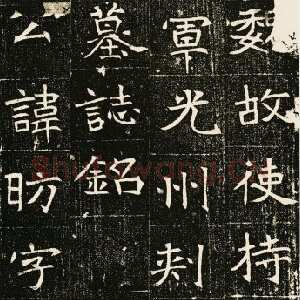 魏故使持
軍光州刺
墓誌銘
公諱昞字